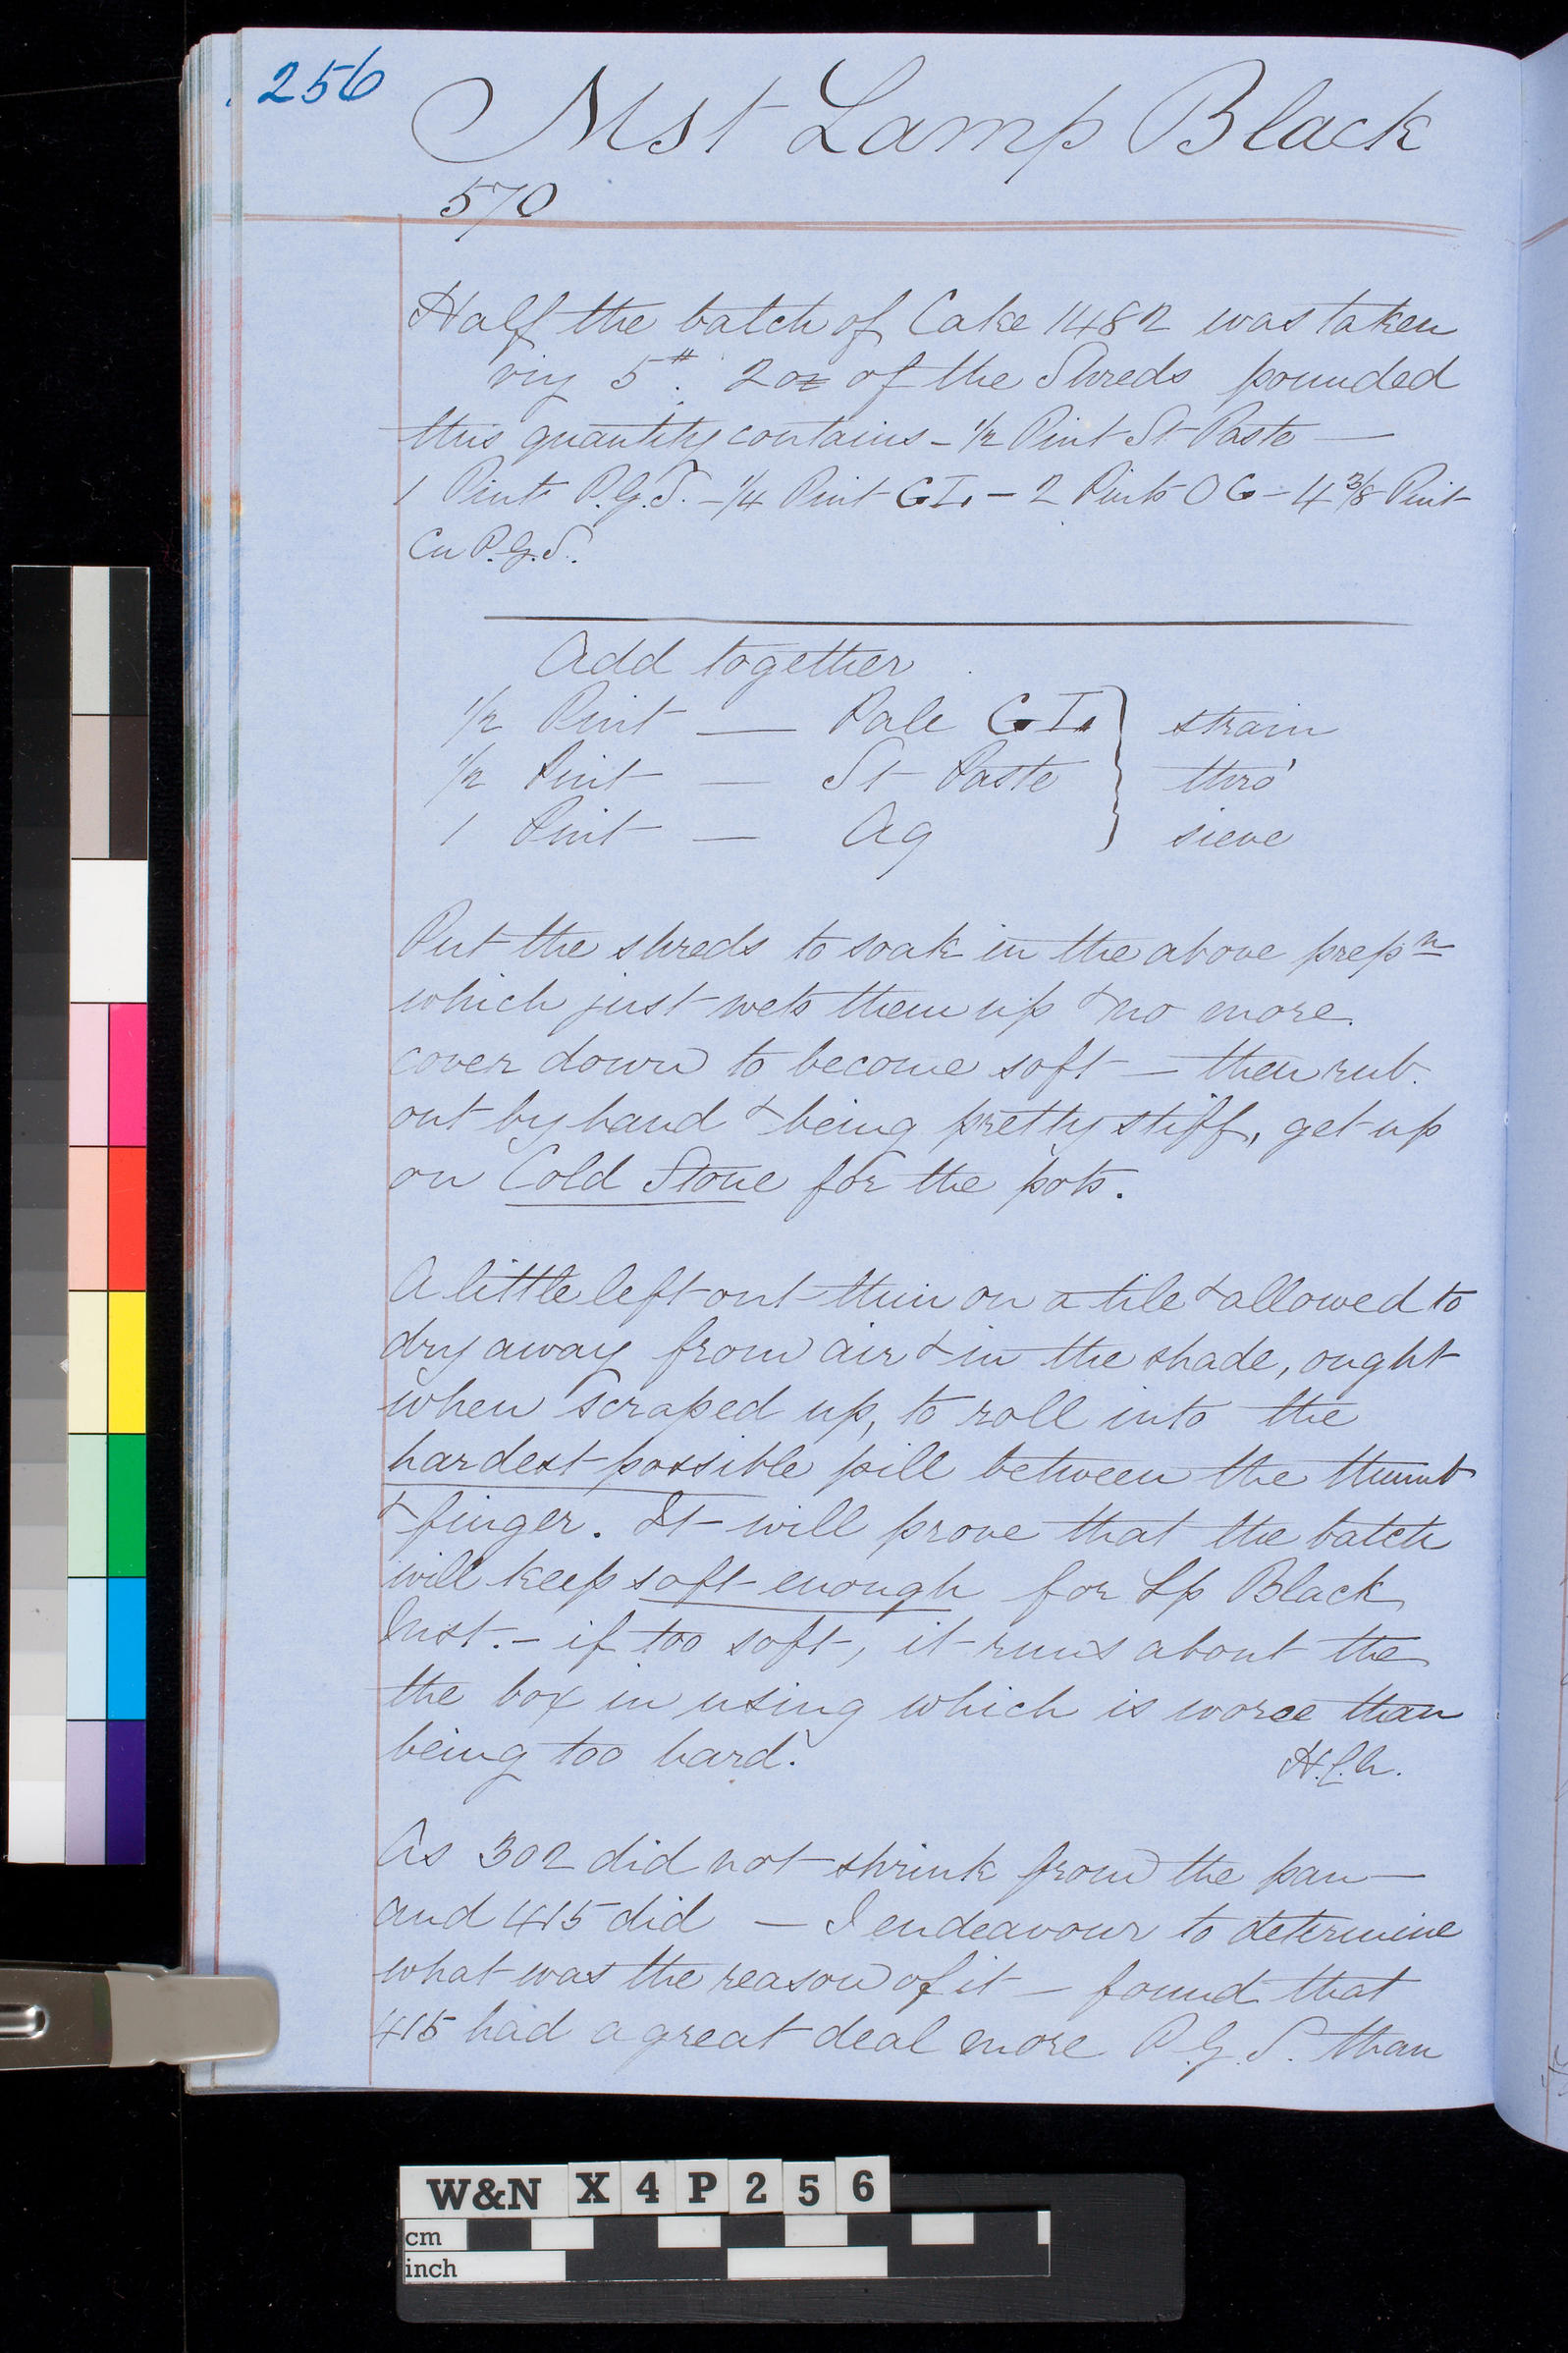 256
Mst Lamp Black
570
Half the batch of Cake 1482 was taken
viz 5# 2oz of the Shreds pounded
this quantity contains - 1/2 Pint St Paste —
1 Pint P.G.S. - 1/4 Pint GI. - 2 Pints OG - 4 3/8 Pint
Cu P.G.S.
Add together
1/2 Pint — Pale GI. } strain
1/2 Pint — St Paste } thro'
1 Pint — Aq } sieve
Put the shreds to soak in the above prepn
which just wets them up & no more.
cover down to become soft — then rub
out by hand & being pretty stiff, get up
on Cold Stone for the pots.
A little left out thin on a tile & allowed to
dry away from air & in the shade, ought
when scraped up, to roll into the
hardest possible pill between the thumb
& finger. It will prove that the batch
will keep soft enough for Lp Black
Mst. - if too soft, it runs about the
the box in using which is worse than
being too hard.
As 302 did not shrink from the pan —
and 415 did — I endeavour to determine
what was the reason of it — found that
415 had a great deal more P.G.S. than
W&N X4P256
cm
inch